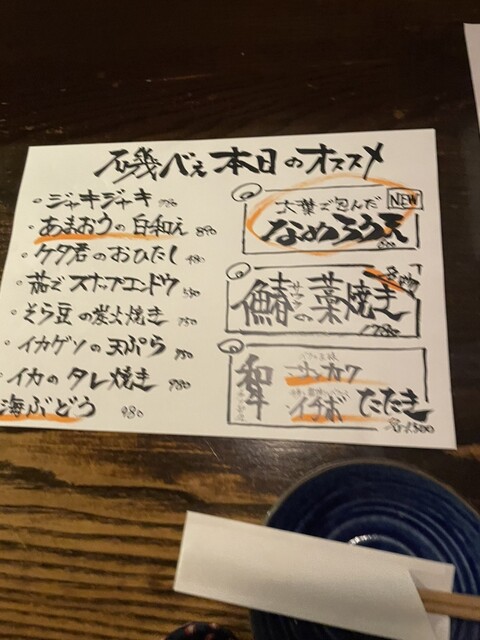 磯べゑ 本日のオススメ
・ジャキジャキ
・あまおうの白和え 890
・ケタ君のおひたし
・茹でスナップエンドウ 550
・そら豆の炭火焼き 750
・イカゲソの天ぷら
・イカのタレ焼き 980
海ぶどう 980
NEW
大葉で包んだ
なめろうゑ
名物
鰆の藁焼き
サワラ
1280
和牛
サンカク
イチボ たたき
各1,500